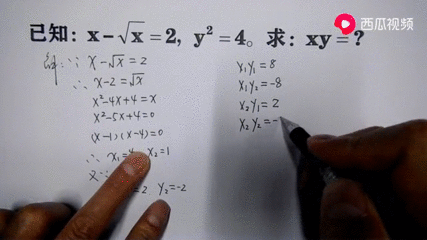 西瓜视频
已知：x-√x=2, y²=4。求：xy=?
解：∵ x-√x=2
∴ x-2=√x
x²-4x+4=x
x²-5x+4=0
(x-1)(x-4)=0
∴ x₁=4 x₂=1
2, y₂=-2
x₁y₁=8
x₁y₂=-8
x₂y₁=2
x₂y₂=-